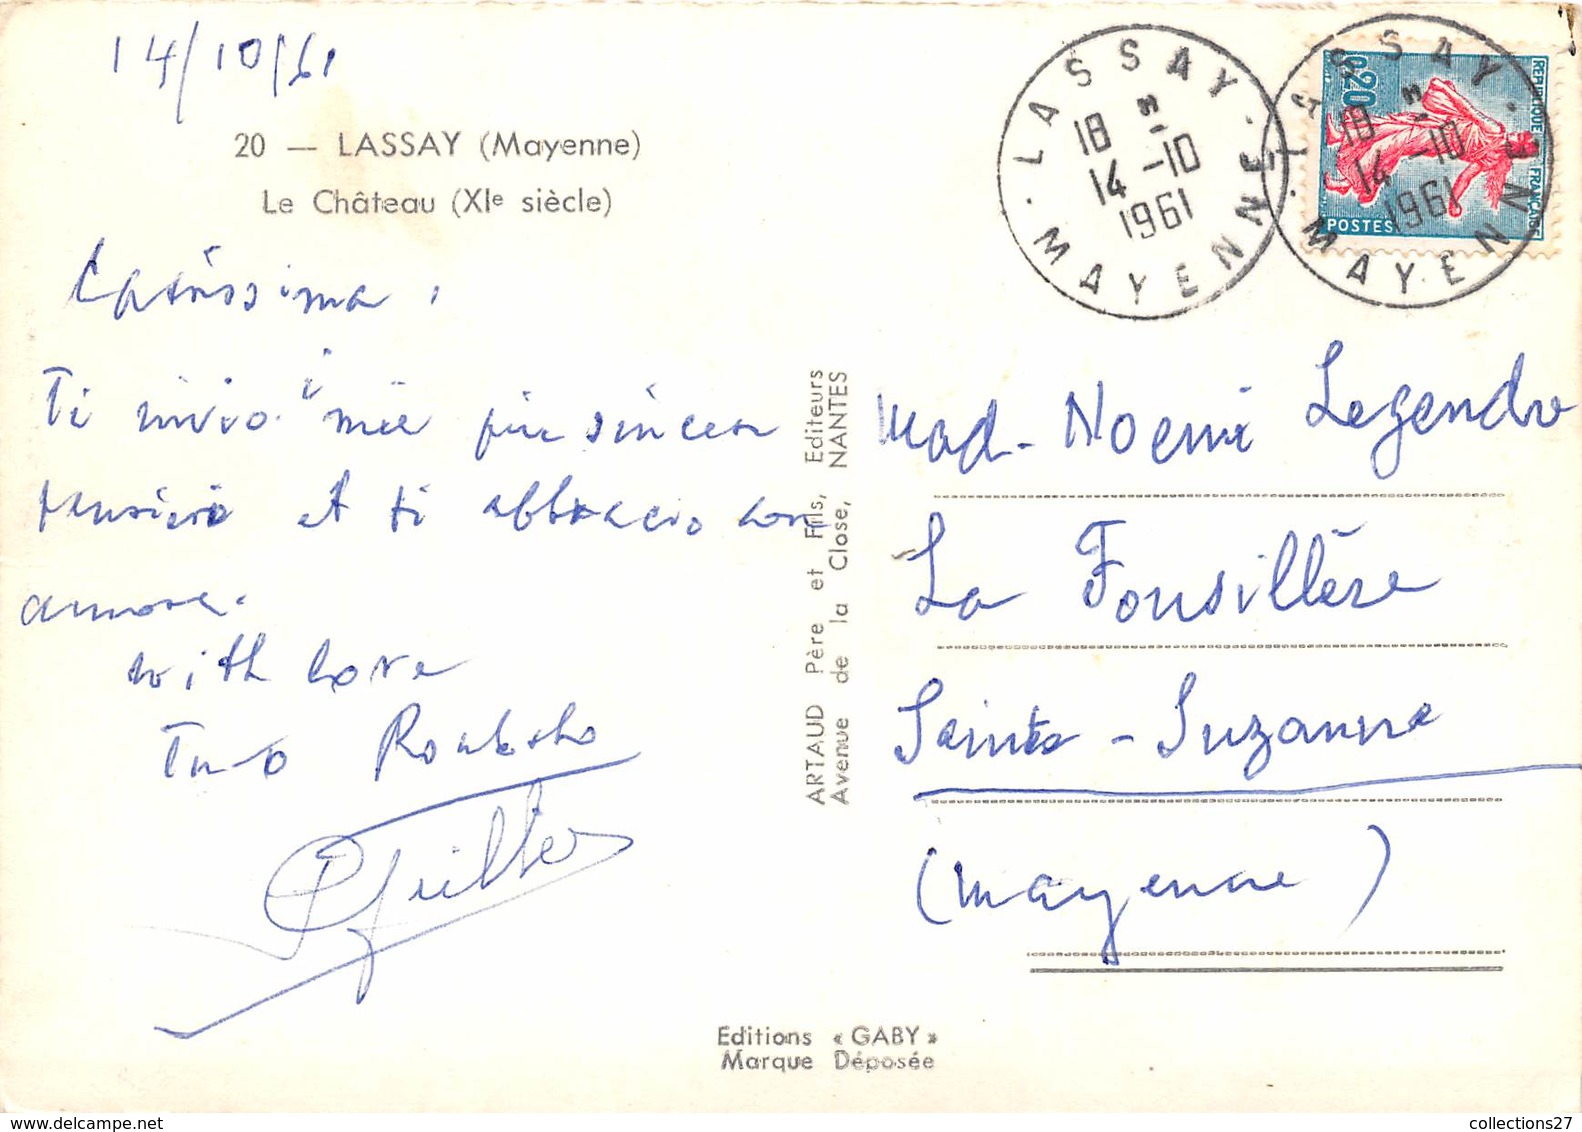 14/10/61
20 — LASSAY (Mayenne)
Le Château (XIe siècle)
Carissima,
Ti invio i miei piu sinceri
pensieri et ti abbraccio con
amore.
with love
Tuo
ARTAUD Père et Fils, Editeurs
Avenue de la Close, NANTES
LASSAY
MAYENNE
18
14 -10
1961
LASSAY
MAYENNE
18
14 -10
1961
0,20
REPUBLIQUE FRANÇAISE
POSTES
Mad. Noemi Legendre
La Fousillère
Sainte-Suzanne
(Mayenne)
Editions « GABY »
Marque Déposée
collections27